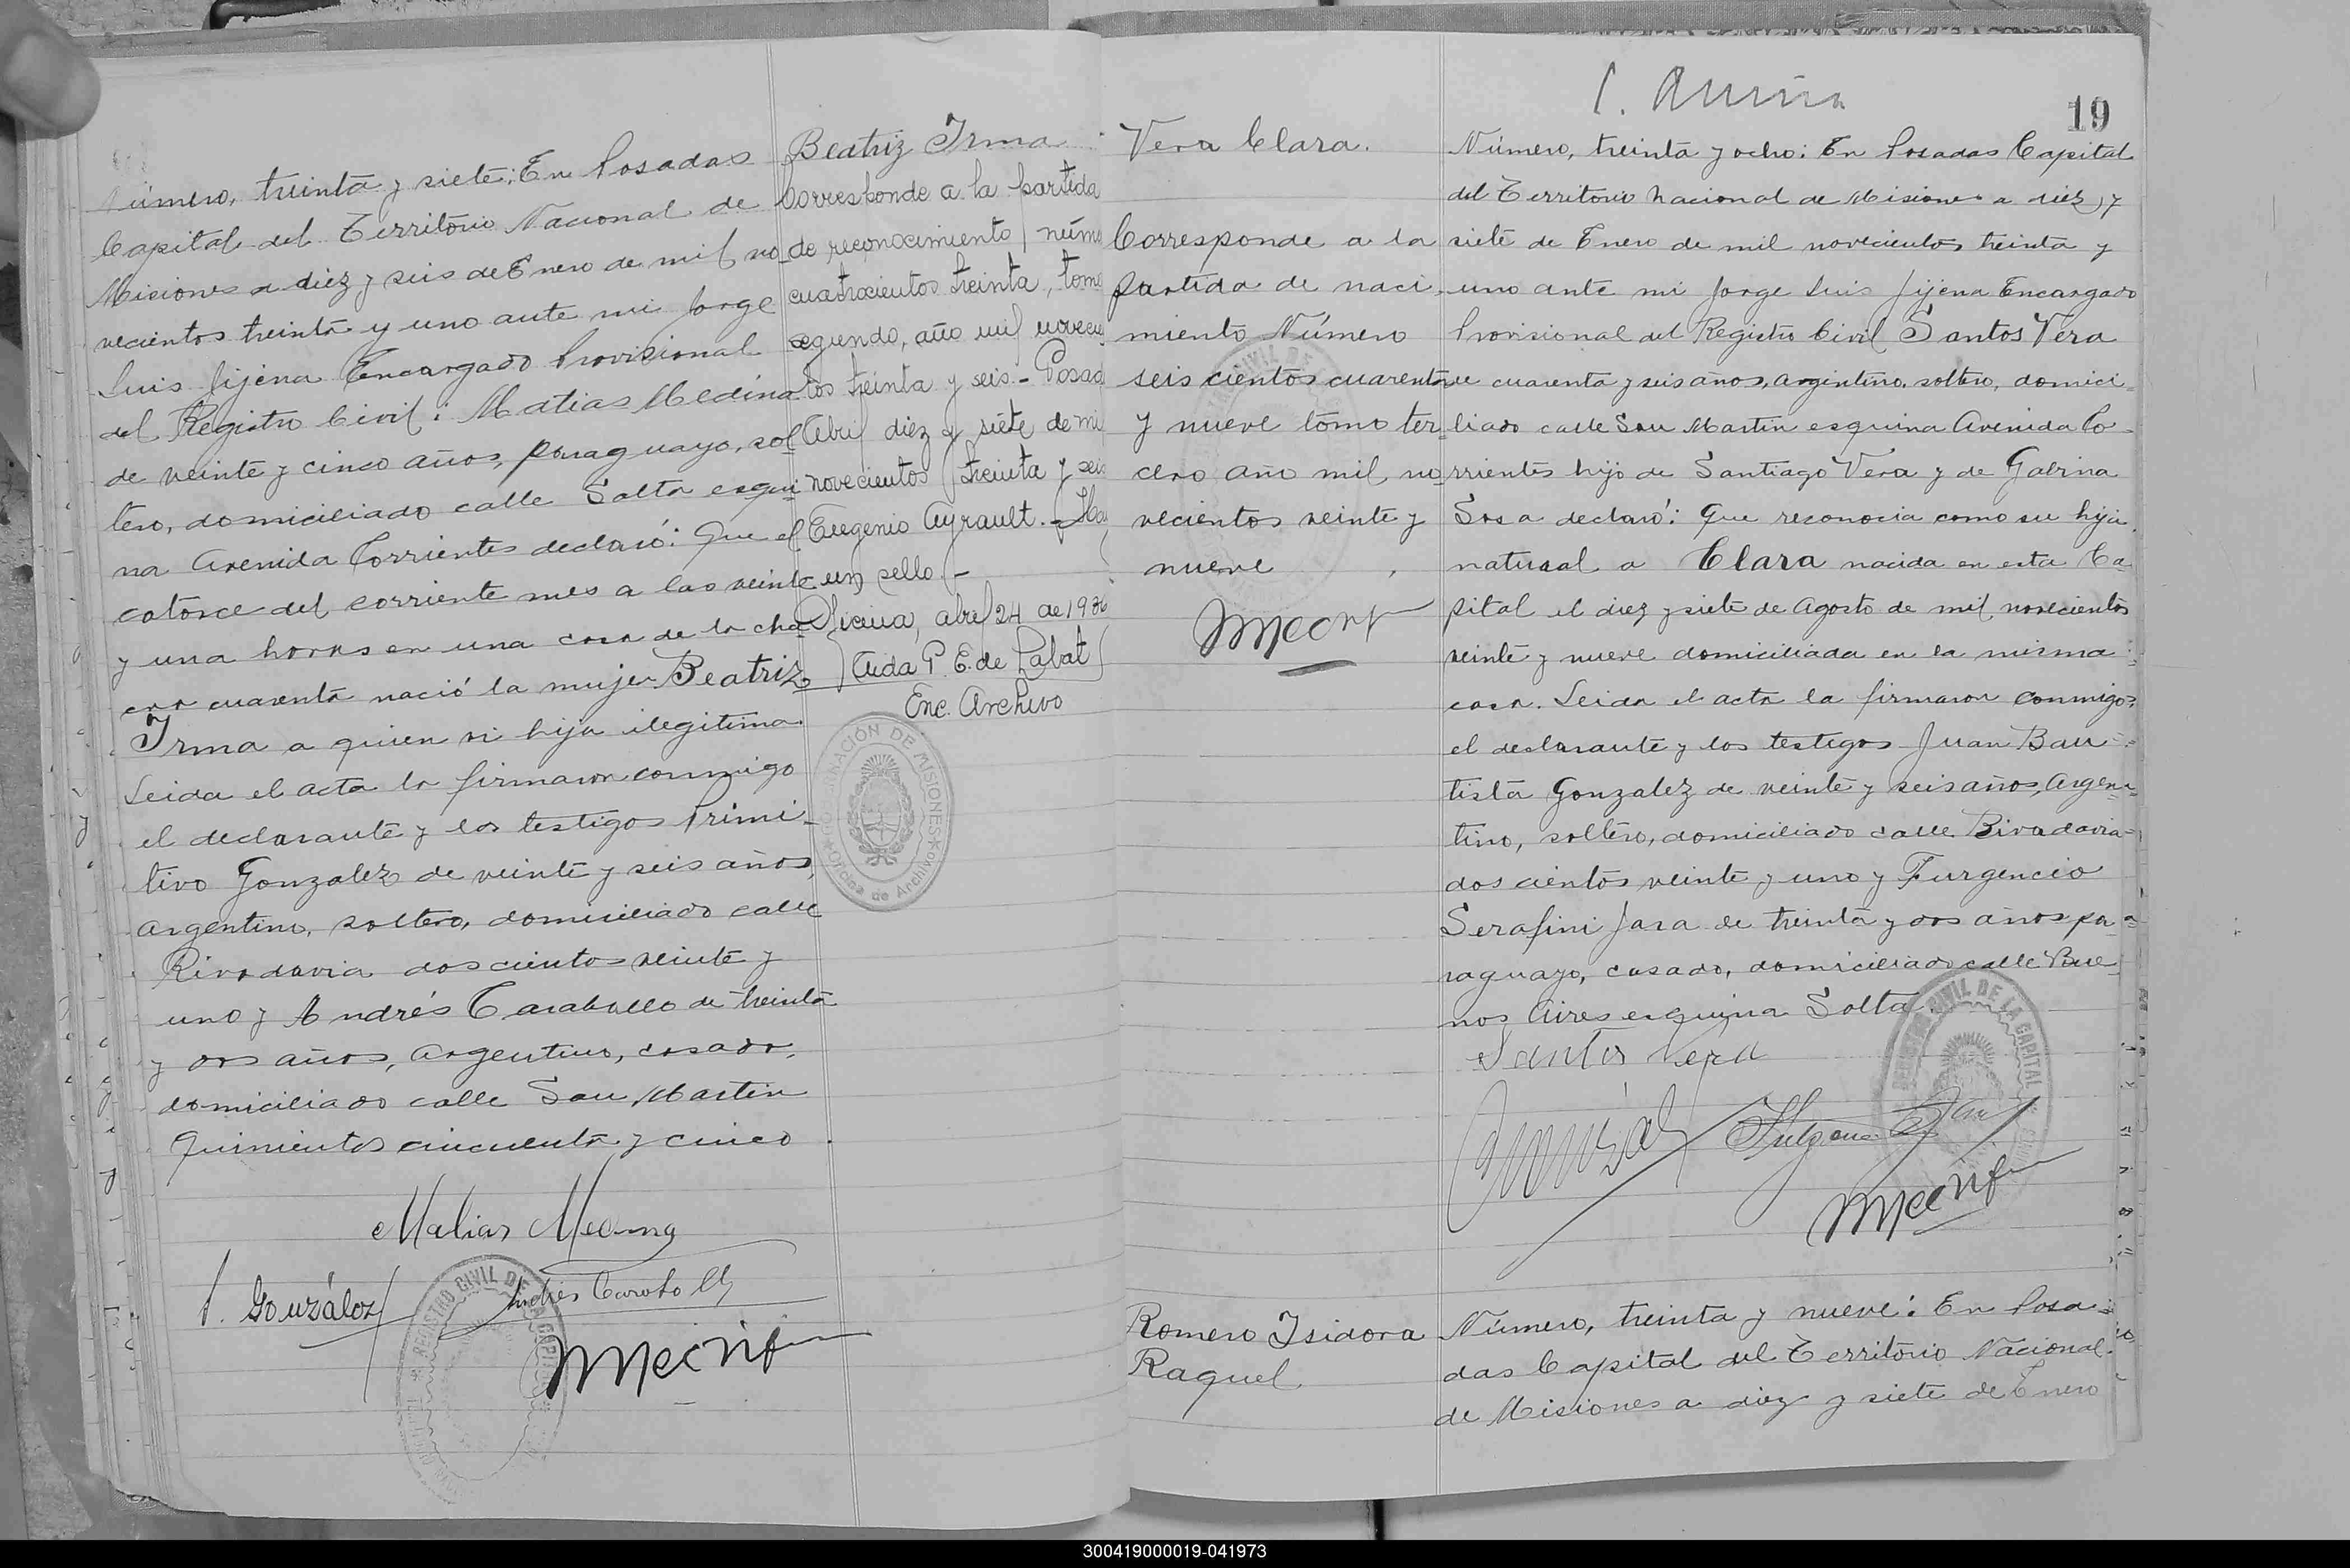 Número, treinta y siete: En Posadas
Capital del Territorio Nacional de
Misiones a diez y seis de Enero de mil no-
vecientos treinta y uno ante mi Jorge
Luis Jijena Encargado Provisional
del Registro Civil: Matias Medina
de veinte y cinco años, paraguayo, sol-
tero, domiciliado calle Salta esqui-
na Avenida Corrientes declaró: Que el
catorce del corriente mes a las veinte
y una horas en una casa de la cha-
cra cuarenta nació la mujer Beatriz
Irma a quien vi hija ilegitima
Leida el acta la firmaron conmigo
el declarante y los testigos Primi-
tivo Gonzalez de veinte y seis años,
argentino, soltero, domiciliado calle
Rivadavia doscientos veinte y
uno y Andrés Caraballo de treinta
y dos años, argentino, casado,
domiciliado calle San Martin
quinientos cincuenta y cinco
Matias Medina
P. González
REGISTRO CIVIL DE LA CAPITAL
Beatriz Irma
Corresponde a la partida
de reconocimiento núme
cuatrocientos treinta, tomo
segundo, año mil novecie
tos treinta y seis.- Posad
Abril diez y siete de mi
novecientos treinta y seis
Eugenio Ayrault.- Hay
un sello.-
Oficina, abril 24 de 1936
Aida P. E. de Labat
Enc. Archivo
GOBERNACIÓN DE MISIONES
Oficina de Archivo
19
Vera Clara.
Corresponde a la
partida de naci-
miento Número
seis cientos cuarenta
y nueve tomo ter-
cero año mil no-
vecientos veinte y
nueve
Número, treinta y ocho: En Posadas Capital
del Territorio Nacional de Misiones a diez y
siete de Enero de mil novecientos treinta y
uno ante mi Jorge Luis Jijena Encargado
Provisional del Registro Civil Santos Vera
de cuarenta y seis años, argentino, soltero, domici-
liado calle San Martin esquina Avenida Co-
rrientes hijo de Santiago Vera y de Gabina
Sosa declaró: Que reconocia como su hija
natural a Clara nacida en esta Ca-
pital el diez y siete de Agosto de mil novecientos
veinte y nueve domiciliada en la misma
casa. Leida el acta la firmaron conmigo
el declarante y los testigos Juan Bau-
tista Gonzalez de veinte y seis años, argen-
tino, soltero, domiciliado calle Rivadavia
dos cientos veinte y uno y Furgencio
Serafini Jara de treinta y dos años pa-
raguayo, casado, domiciliado calle Bue-
nos Aires esquina Salta
Santos Vera
REGISTRO CIVIL DE LA CAPITAL
Romero Isidora
Raquel
Número, treinta y nueve: En Posa-
das Capital del Territorio Nacional
de Misiones a diez y siete de Enero
300419000019-041973